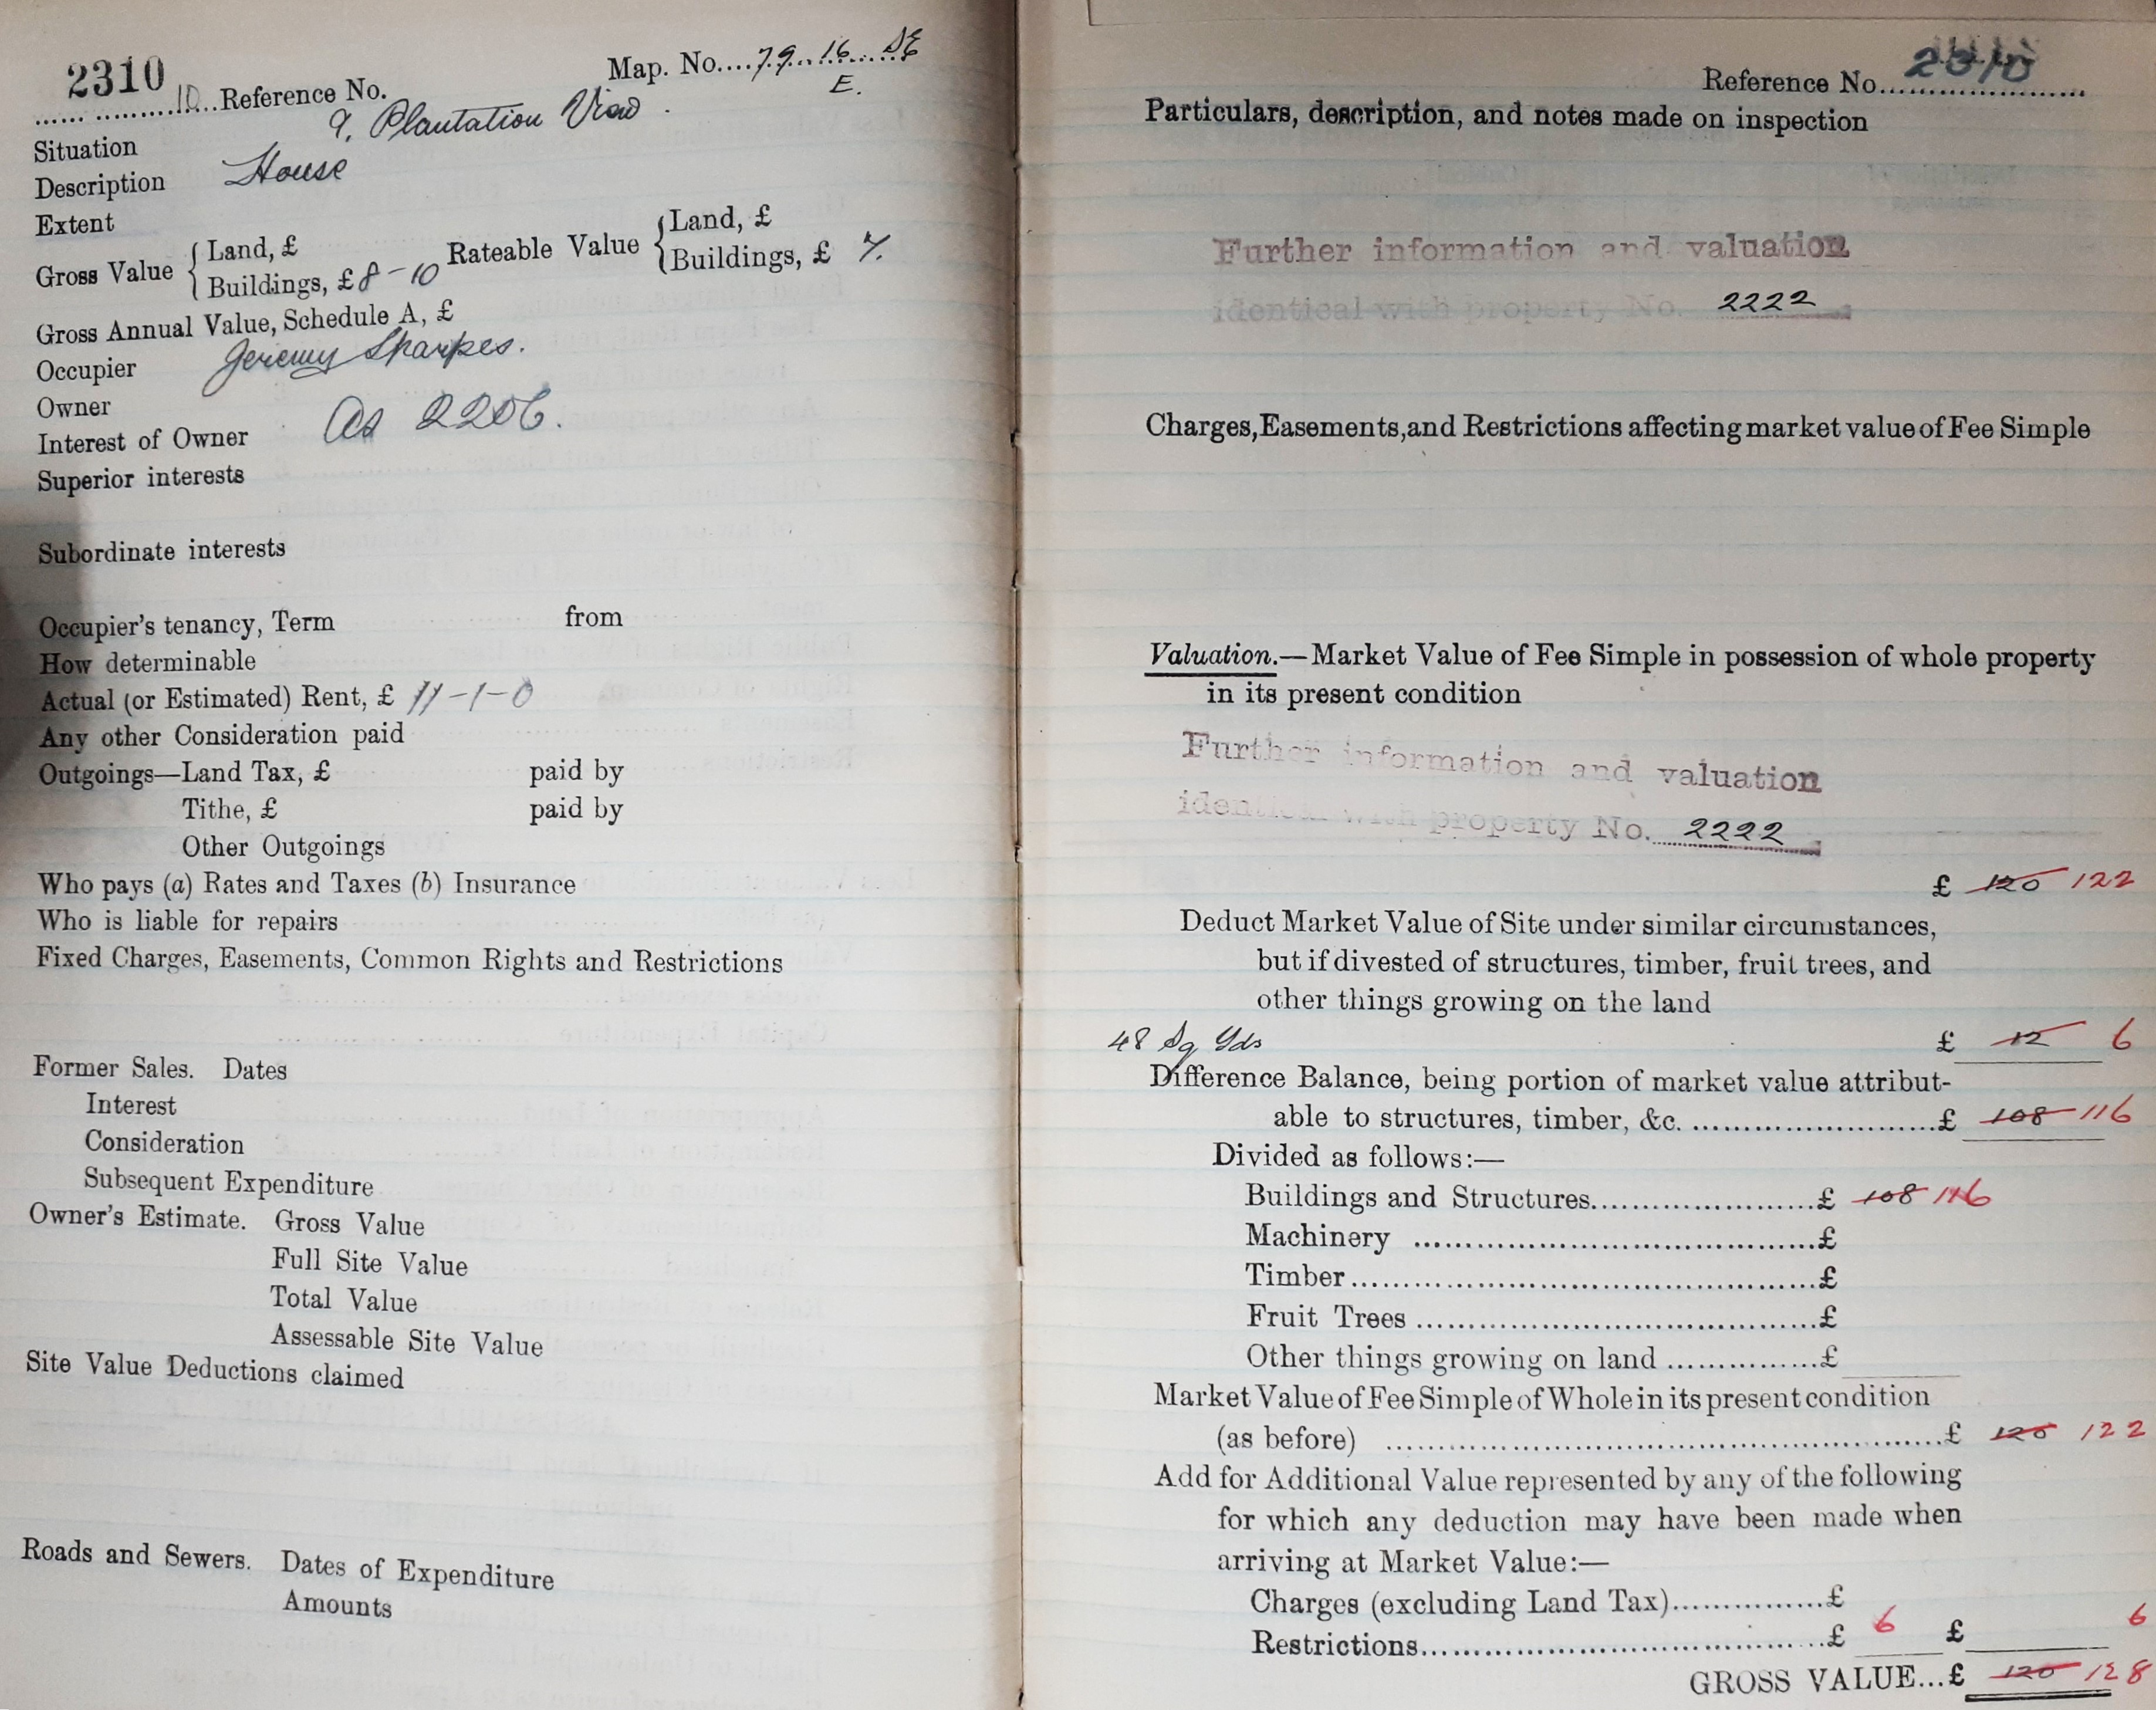 2310
Map. No....79. 16. SE
E.
10...Reference No.
Situation 9, Plantation View.
Description House
Extent
Gross Value { Land, £
Buildings, £ 8-10
Rateable Value { Land, £
Buildings, £ 7.
Gross Annual Value, Schedule A, £
Occupier Jeremy Sharpes.
Owner
As 2206.
Interest of Owner
Superior interests
Subordinate interests
Occupier's tenancy, Term from
How determinable
Actual (or Estimated) Rent, £ 11-1-0
Any other Consideration paid
Outgoings—Land Tax, £ paid by
Tithe, £ paid by
Other Outgoings
Who pays (a) Rates and Taxes (b) Insurance
Who is liable for repairs
Fixed Charges, Easements, Common Rights and Restrictions
Former Sales. Dates
Interest
Consideration
Subsequent Expenditure
Owner's Estimate. Gross Value
Full Site Value
Total Value
Assessable Site Value
Site Value Deductions claimed
Roads and Sewers. Dates of Expenditure
Amounts
Reference No. 2310
Particulars, description, and notes made on inspection
Further information and valuation
identical with property No. 2222
Charges, Easements, and Restrictions affecting market value of Fee Simple
Valuation.—Market Value of Fee Simple in possession of whole property
in its present condition
Further information and valuation
identical with property No. 2222
£ 120 122
Deduct Market Value of Site under similar circumstances,
but if divested of structures, timber, fruit trees, and
other things growing on the land
48 Sq Yds £ 12 6
Difference Balance, being portion of market value attribut-
able to structures, timber, &c. ........................£ 108 116
Divided as follows:—
Buildings and Structures........................£ 108 116
Machinery ........................£
Timber........................£
Fruit Trees ........................£
Other things growing on land ...............£
Market Value of Fee Simple of Whole in its present condition
(as before) ........................£ 120 122
Add for Additional Value represented by any of the following
for which any deduction may have been made when
arriving at Market Value:—
Charges (excluding Land Tax)...............£
Restrictions........................£ 6 £ 6
GROSS VALUE...£ 120 128